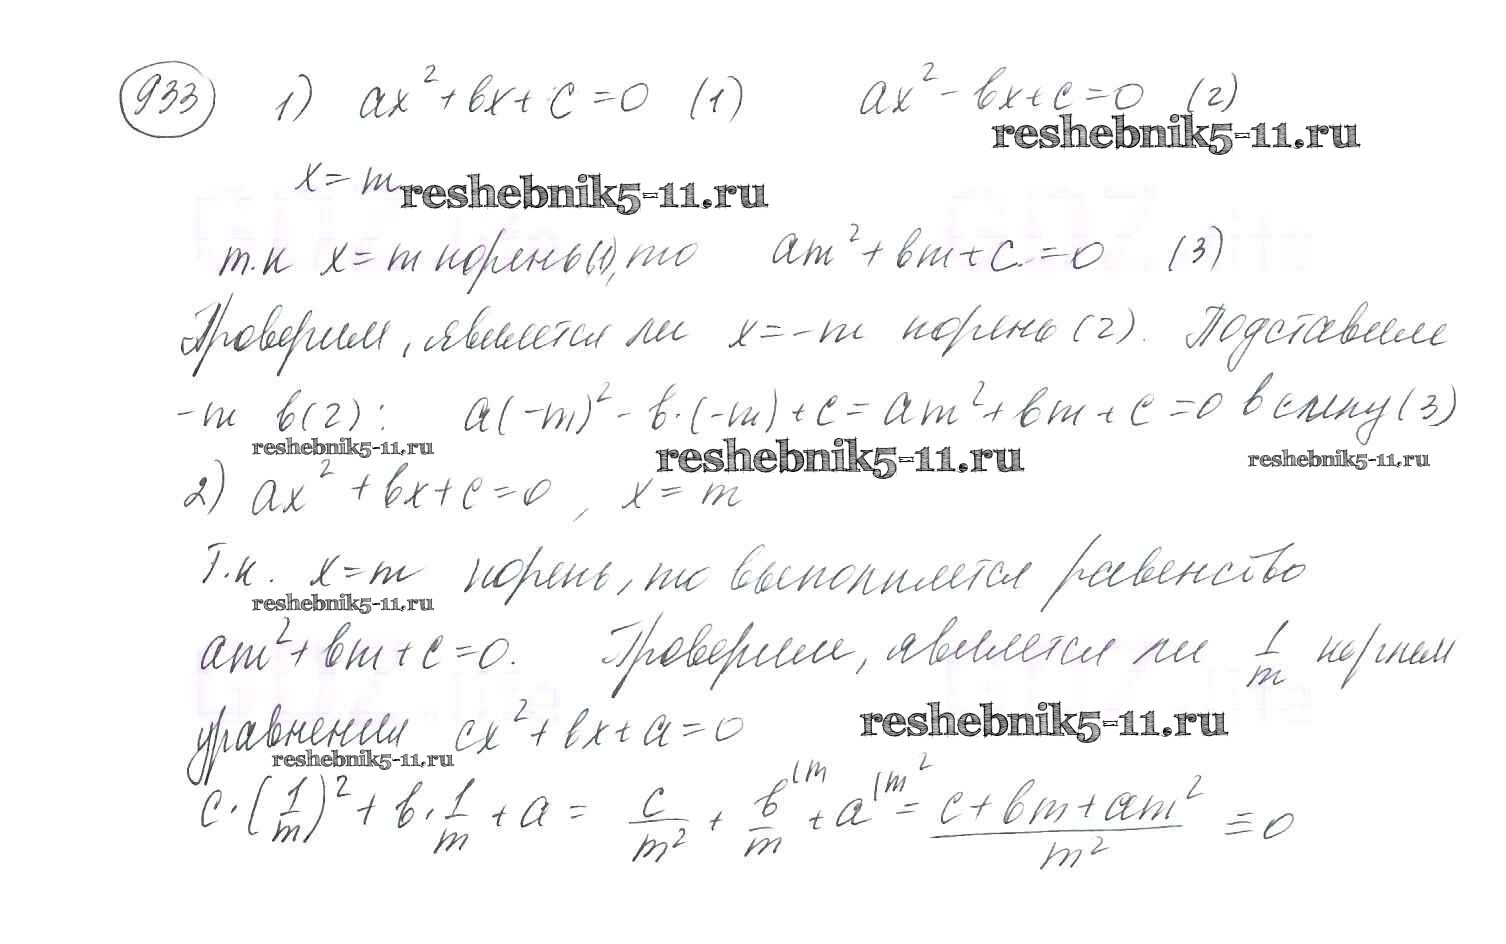 933 1) ax² + bx + c = 0 (1) ax² - bx + c = 0 (2)
reshebnik5-11.ru
x = m
reshebnik5-11.ru
т.к x = m корень (1), то am² + bm + c = 0 (3)
Проверим, является ли x = -m корень (2). Подставим
-m в (2): a(-m)² - b·(-m) + c = am² + bm + c = 0 в силу (3)
reshebnik5-11.ru reshebnik5-11.ru reshebnik5-11.ru
2) ax² + bx + c = 0, x = m
Т.к. x = m корень, то выполняется равенство
reshebnik5-11.ru
am² + bm + c = 0. Проверим, является ли 1/m корнем
уравнения cx² + bx + a = 0
reshebnik5-11.ru
reshebnik5-11.ru
c·(1/m)² + b·1/m + a = c/m² + b/m |m + a |m² = (c + bm + am²)/m² ≡ 0